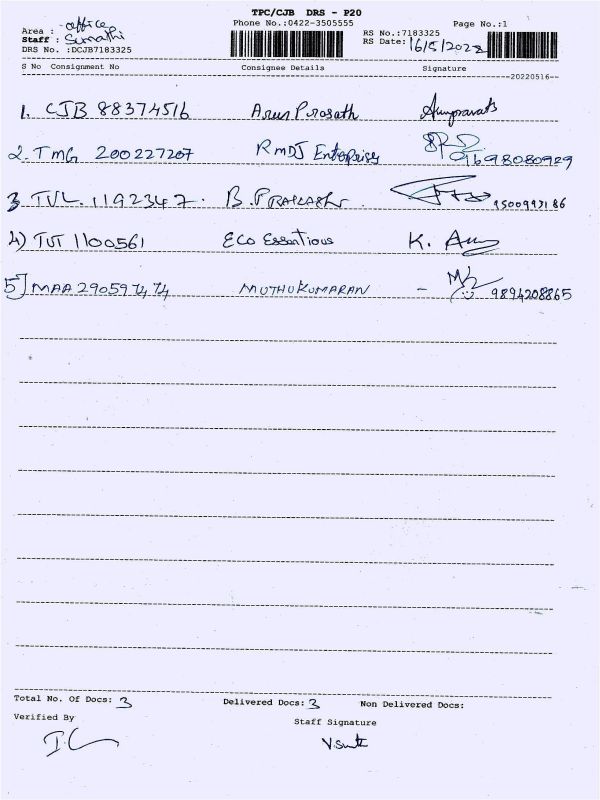 TPC/CJB DRS - P20
Area : office
Phone No.:0422-3505555
Page No.:1
Staff : Sumathi
RS No.:7183325
DRS No. :DCJB7183325
RS Date: 16/5/2022
S No Consignment No Consignee Details Signature
--20220516--
1. CJB 88374516 Arun Prasath Arunprasath
2. TMG 200227207 RMDJ Enterprises 01698080929
3 TVL. 1192347. B. PRAKASH. 9500993186
4) TUT 1100561 Eco Essentious K. Arun
5] MAA 290597474 MUTHUKUMARAN - 9894208865
Total No. Of Docs: 3 Delivered Docs: 3 Non Delivered Docs:
Verified By Staff Signature